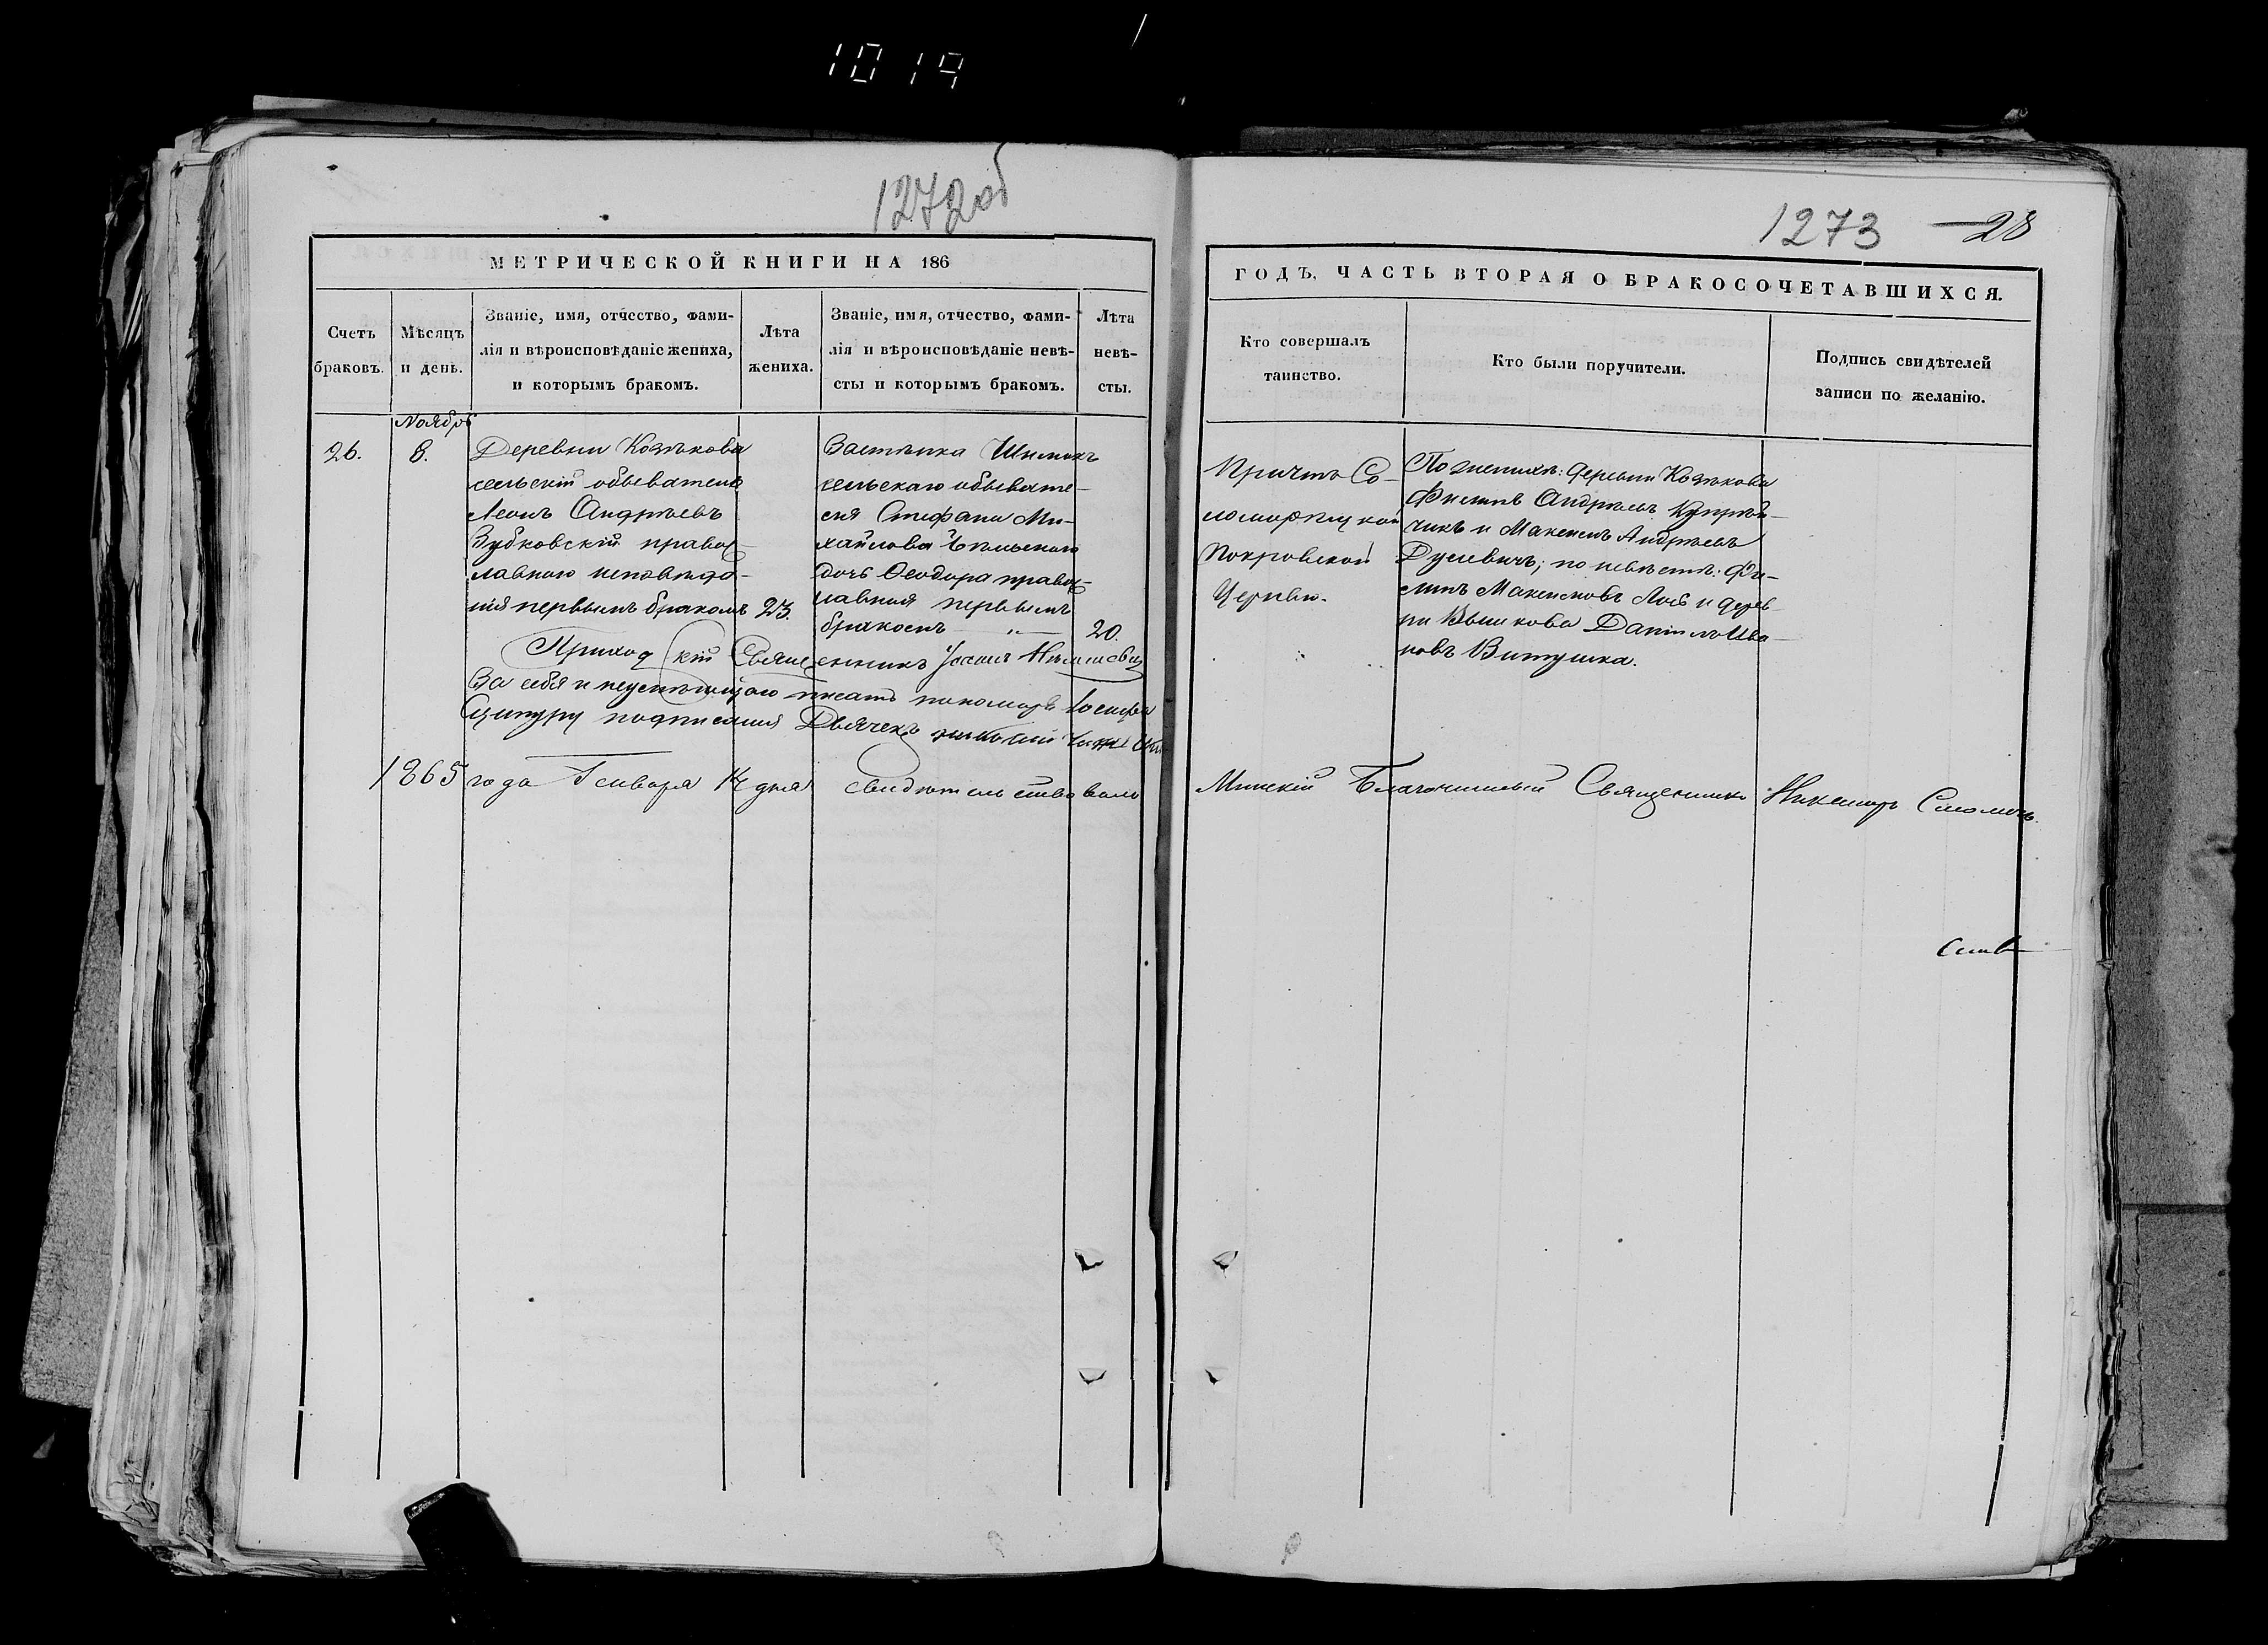 1019
1272об
МЕТРИЧЕСКОЙ КНИГИ НА 186
Счетъ браковъ.
Мѣсяцъ и день.
Званіе, имя, отчество, фами-
лія и вѣроисповѣданіе жениха,
и которымъ бракомъ.
Лѣта
жениха.
Званіе, имя, отчество, фами-
лія и вѣроисповѣданіе невѣ-
сты и которымъ бракомъ.
Лѣта
невѣ-
сты.
Ноябрь
26.
8.
Деревни Козъкова
сельскій обыватель
Леонъ Андреевъ
Зубковскій правос-
лавнаго исповѣда-
нія первымъ бракомъ
23.
Застѣнка
сельскаго обывате-
ля Стефана Ми-
хайлова
дочь Ѳеодора правос-
лавная первымъ
бракомъ
20.
Приходскій Священникъ
За себя и неумѣющаго писать пономаря Іосифа
подписался Дьячекъ
1865 года Генваря 14 дня свидѣтельствовалъ
1273
28
ГОДЪ, ЧАСТЬ ВТОРАЯ О БРАКОСОЧЕТАВШИХСЯ.
Кто совершалъ
таинство.
Кто были поручители.
Подпись свидѣтелей
записи по желанію.
Причтъ Со-
ломорѣцкой
Покровской
Церкви.
По женихѣ: деревни Козъкова
Филипъ Андреевъ
и Максимъ Андреевъ
Дусевичъ; по невѣстѣ: Фи-
липъ Максимовъ Лось и дерев-
ни Вышкова Данило Ива-
новъ Витушка.
Минскій Благочинный Священникъ Никаноръ Смоличъ.